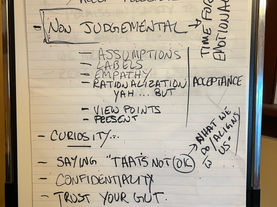 - NON JUDGEMENTAL →
TIME FOR
EMOTIONAL
- ASSUMPTIONS
- LABELS
- EMPATHY
- RATIONALIZATION
YAH ... BUT
- VIEW POINTS
- PRESENT
ACCEPTANCE
- CURIOSITY...
- SAYING "THAT'S NOT OK"
WHAT WE
DO/ALIGNS
US
- CONFIDENTIALITY
- TRUST YOUR GUT.